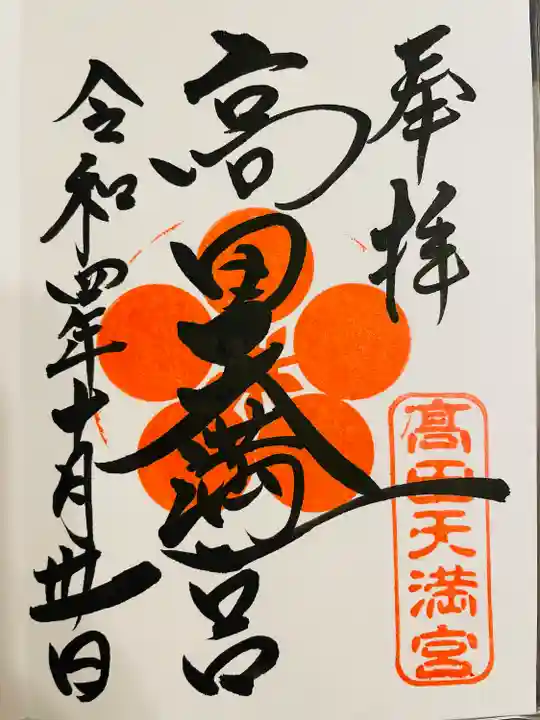 奉拝
髙田天満宮
高田天満宮
令和四年十月卅日